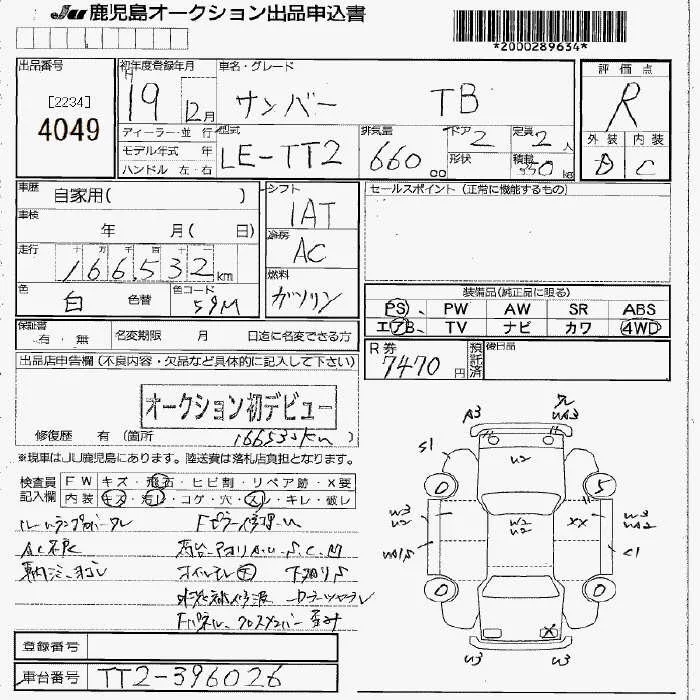 JU 鹿児島オークション出品申込書
*2000289634*
出品番号
[2234]
4049
初年度登録年月
H 19 12月
車名・グレード
サンバー TB
評価点
R
外装 内装
D C
ディーラー・並 行
モデル年式 年
ハンドル 左・右
型式
LE-TT2
排気量
660 cc
ドア
2
形状
定員
2人
積載
350 kg
車歴
自家用( )
車検
年 月( 日)
走行
十 万 千 百 十 一
166,532 km
色
白 色替
色コード
59M
シフト
IAT
冷房
AC
燃料
ガソリン
セールスポイント (正常に機能するもの)
装備品(純正品に限る)
PS、 PW AW SR ABS
エアB、 TV ナビ カワ 4WD
保証書
有・無
名変期限 月 日迄に名変できる方
R券
7470円
預託済
後日品
出品店申告欄 (不良内容・欠品など具体的に記入して下さい)
オークション初デビュー
修復歴 有 (箇所 166532km )
※現車はJU鹿児島にあります。陸送費は落札店負担となります。
検査員記入欄
FW キズ・飛石・ヒビ割・リペア跡・X要
内装・キズ・汚レ・コゲ・穴・スレ・キレ・破レ
Fピラー修理
AC不良
オイルモレ 下廻りS
Fパネル、クロスメンバー歪み
登録番号
車台番号
TT2-396026
A3
UA3
S1
U2
0
5
W3
U2
W2
U2
XX
W3
UA2
UA1S
C1
0
0
X
U3
U3